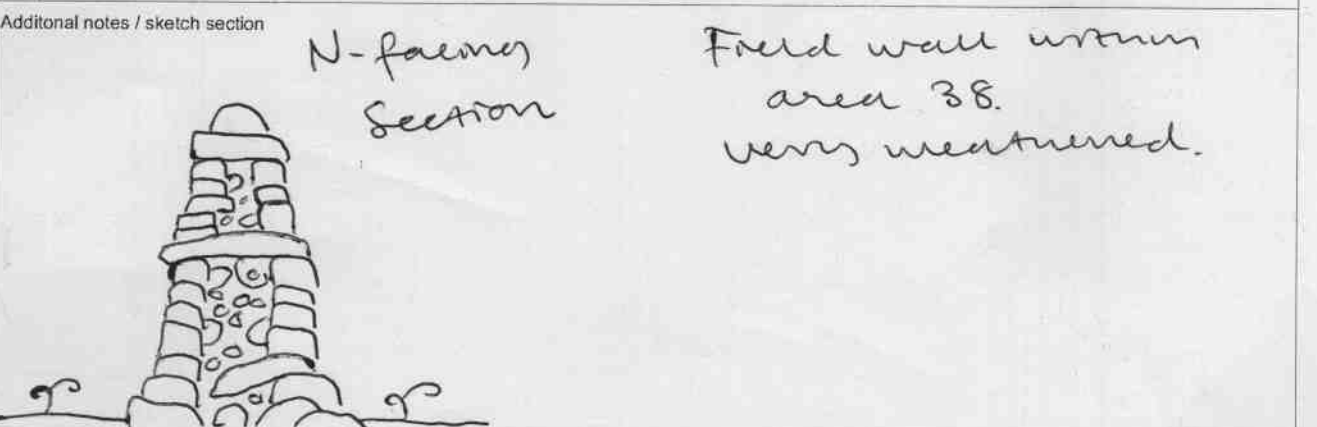 Additonal notes / sketch section
N-facing
Section
Field wall within
area 38.
very weathered.